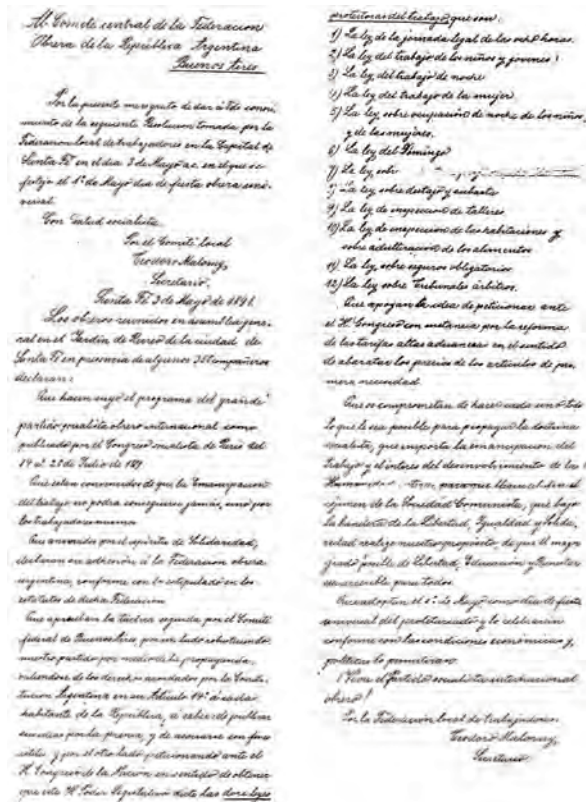 Al Comité central de la Federacion
Obrera de la República Argentina
Buenos Aires
Por la presente me es grato de dar á Vds conoci-
miento de la siguiente Resolucion tomada por la
Federacion local de trabajadores en la Capital de
Santa Fé en el dia 3 de Mayo ac. en el que se
festejo el 1º de Mayo dia de fiesta obrera uni-
versal.
Con Salud socialista
Por el Comité local
Teodoro Malorny,
Secretario.
Santa Fé 3 de Mayo de 1891.
Los obreros reunidos en asamblea gene-
ral en el Jardin de Recreo de la ciudad de
Santa Fé en presencia de algunos 300 compañeros
declaran:
Que hacen suyo el programa del grande
partido socialista obrero internacional como
publicado por el Congreso socialista de Paris del
14 al 21 de Julio de 1889.
Que estan convencidos de que la Emancipacion
del trabajo no podra conseguirse jamás, sinó por
los trabajadores mismos.
Que animados por el espiritu de Solidaridad,
declaran su adhesion á la Federacion obrera
argentina, conforme con lo estipulado en los
estatutos de dicha Federacion.
Que aprueban la tactica seguida por el Comité
federal de Buenos Aires, por un lado robusteciendo
nuestro partido por medio de la propaganda,
valiendose de los derechos acordados por la Consti-
tucion Argentina en su Articulo 14º á cada
habitante de la República, á saber de publicar
sus ideas por la prensa, y de asociarse con fines
utiles, y por el otro lado peticionando ante el
H. Congreso de la Nacion en sentido de obtener
que este H. Poder Legislativo dicte las doce leyes
protectoras del trabajo que son:
1) La ley de la jornada legal de las ocho horas.
2) La ley del trabajo de los niños y jovenes!
3) La ley del trabajo de noche
4) La ley del trabajo de la mujer
5) La ley sobre ocupacion de noche de los niños
y de las mujeres.
6) La ley del Domingo
7) La ley sobre
8) La ley sobre destajo y subasta
9) La ley de inspeccion de talleres
10) La ley de inspeccion de las habitaciones y
sobre adulteracion de los alimentos
11) La ley sobre seguros obligatorios
12) La ley sobre Tribunales árbitros.
Que apoyan la idea de peticionar ante
el H. Congreso con instancia por la reforma
de las tarifas altas aduaneras en el sentido
de abaratar los precios de los articulos de pri-
mera necesidad.
Que se comprometen de hacer cada uno todo
lo que le sea posible para propagar la doctrina
socialista, que importa la emancipacion del
Trabajo y el interes del desenvolvimiento de la
Humanidad para que llegue el dia el
réjimen de la Sociedad Comunista, que bajo
la bandera de la Libertad, Igualdad y Solida-
redad realize nuestro proposito, de que el mayor
grado posible de Libertad, Educacion y Bienestar
sea accesible para todos.
Que adoptan el 1º de Mayo como dia de fiesta
universal del proletariado y lo celebraran
conforme con las condiciones económicas y
politicas lo permitiran.
¡Viva el Partido socialista internacional
obrero!
Por la Federacion local de trabajadores
Teodoro Malorny,
Secretario.